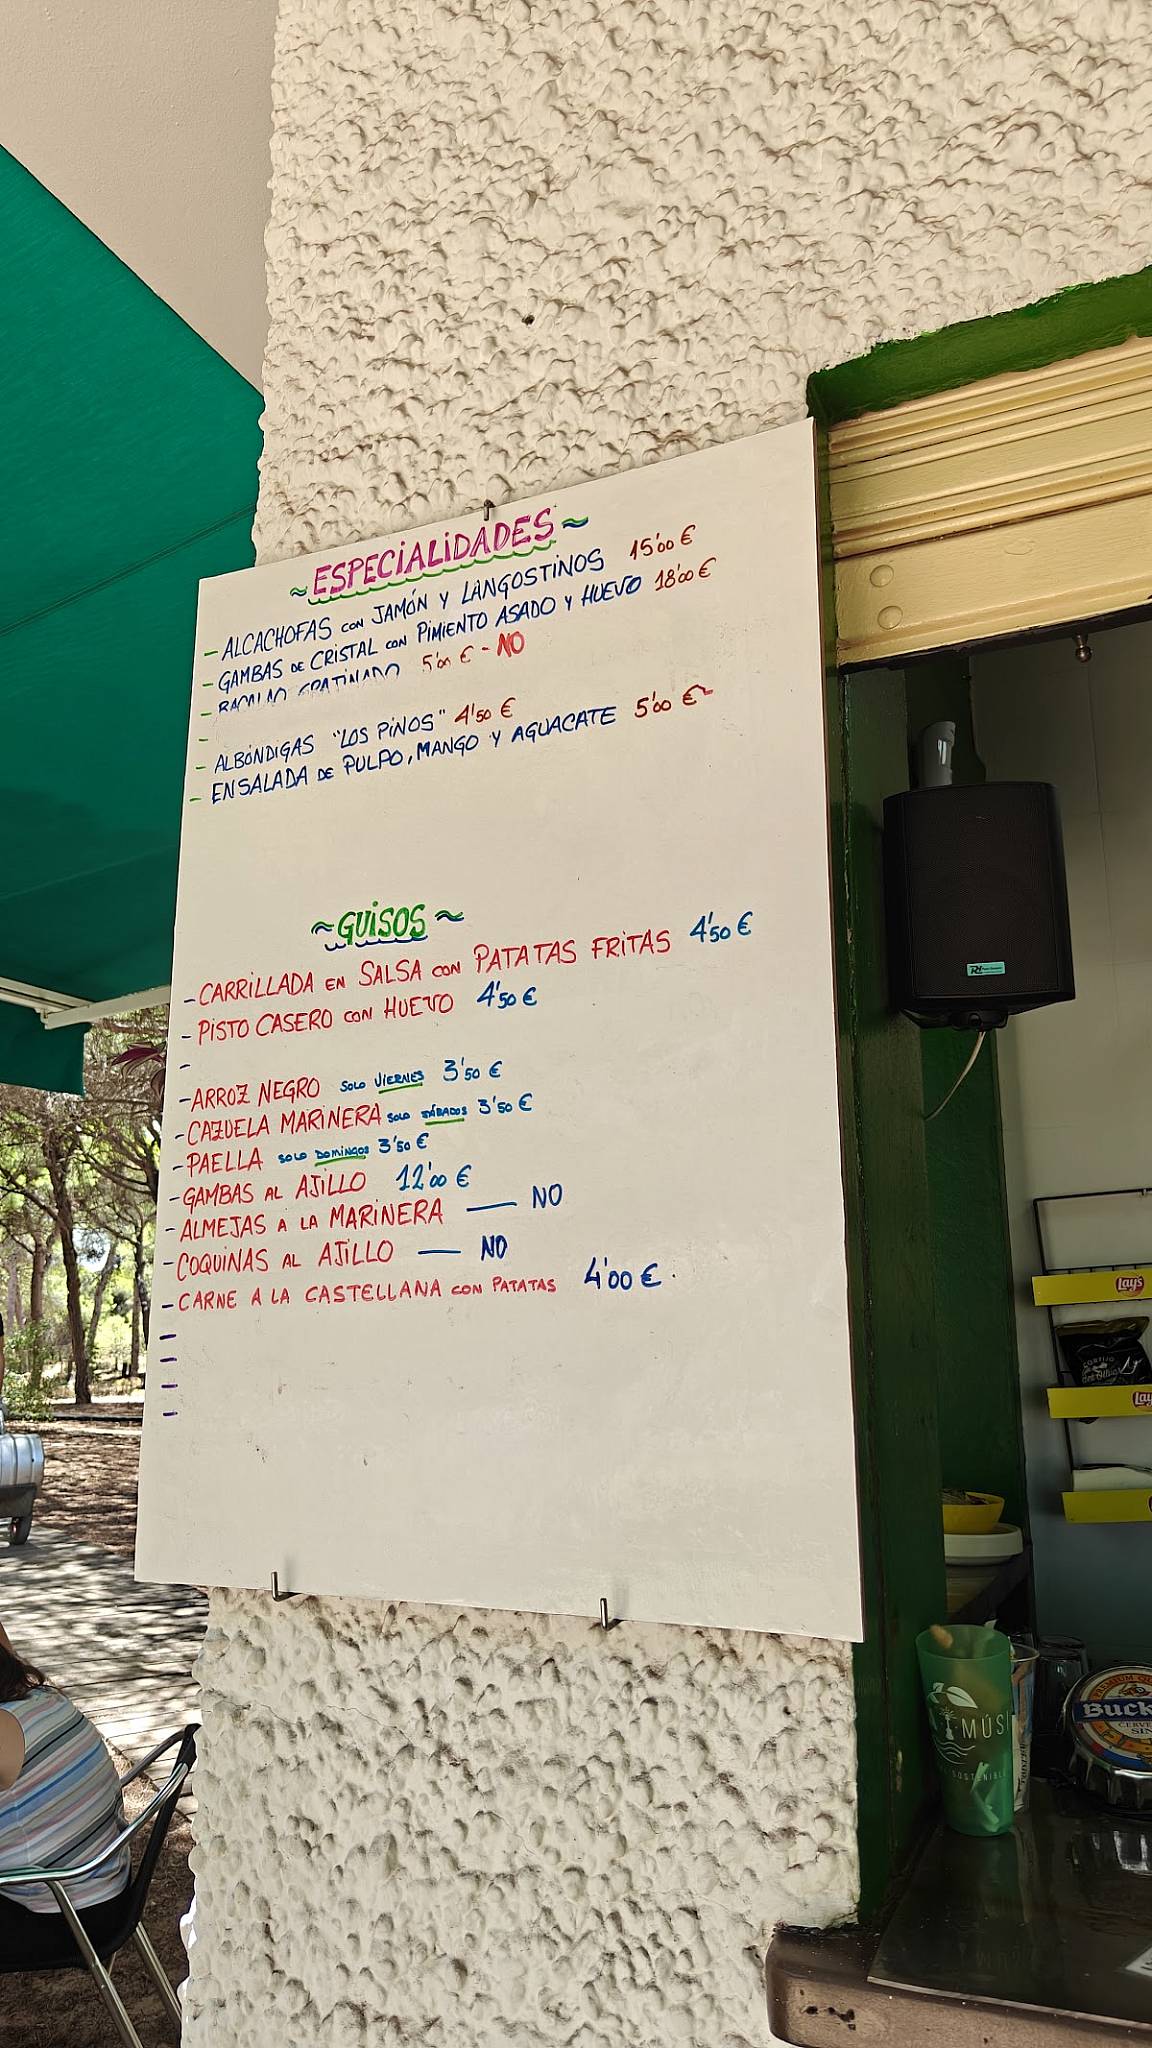 ~ESPECIALIDADES~
- ALCACHOFAS CON JAMÓN Y LANGOSTINOS 15'00 €
- GAMBAS DE CRISTAL CON PIMIENTO ASADO Y HUEVO 18'00 €
- BACALAO GRATINADO 5'00 € - NO
-
- ALBÓNDIGAS "LOS PINOS" 4'50 €
- ENSALADA DE PULPO, MANGO Y AGUACATE 5'00 €
~GUISOS~
- CARRILLADA EN SALSA CON PATATAS FRITAS 4'50 €
- PISTO CASERO CON HUEVO 4'50 €
-
- ARROZ NEGRO SOLO VIERNES 3'50 €
- CAZUELA MARINERA SOLO SÁBADOS 3'50 €
- PAELLA SOLO DOMINGOS 3'50 €
- GAMBAS AL AJILLO 12'00 €
- ALMEJAS A LA MARINERA — NO
- COQUINAS AL AJILLO — NO
- CARNE A LA CASTELLANA CON PATATAS 4'00 €.
-
-
-
-
Lay's
CORTIJO
Lay
MÚSI
SOSTENIBLE
PREMIUM
Buck
CERVE
SIN